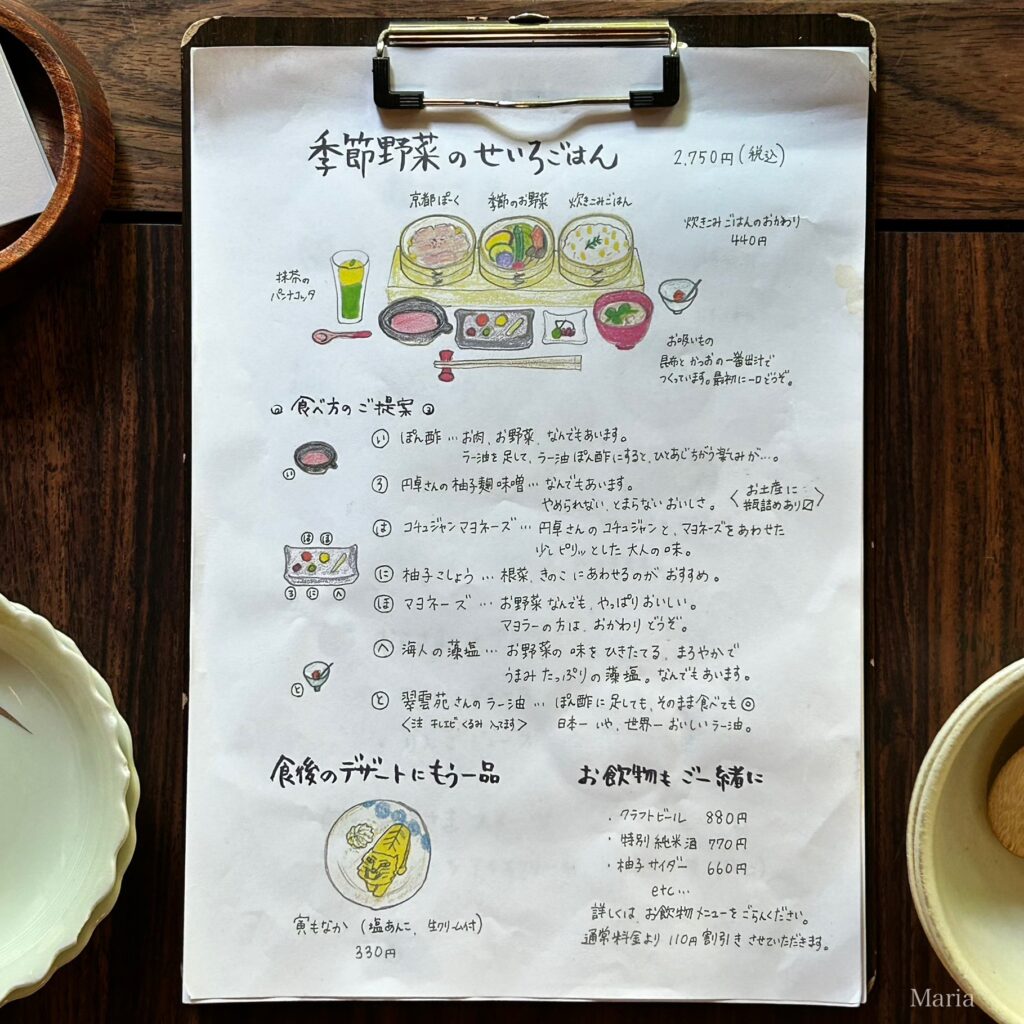 季節野菜のせいろごはん
2,750円(税込)
京都ぽーく
季節のお野菜
炊きこみごはん
炊きこみごはんのおかわり
440円
抹茶の
パンナコッタ
お吸いもの
昆布とかつおの一番出汁で
つくっています。最初に一口どうぞ。
食べ方のご提案
い ぽん酢…お肉、お野菜、なんでもあいます。
ラー油を足して、ラー油ぽん酢にすると、ひとあじちがう楽しみが…。
い
ろ 円卓さんの柚子麹味噌…なんでもあいます。
やめられない、とまらないおいしさ。
〈お土産に
瓶詰めあり〼〉
は コチュジャンマヨネーズ…円卓さんのコチュジャンと、マヨネーズをあわせた
少しピリッとした大人の味。
は ほ
ろ に へ
に 柚子こしょう…根菜、きのこにあわせるのがおすすめ。
ほ マヨネーズ…お野菜なんでも、やっぱりおいしい。
マヨラーの方は、おかわりどうぞ。
へ 海人の藻塩…お野菜の味をひきたてる、まろやかで
うまみたっぷりの藻塩。なんでもあいます。
と
と 翠雲苑さんのラー油…ぽん酢に足しても、そのまま食べても◎
〈注 干しエビ くるみ 入ってます〉
日本一 いや、世界一おいしいラー油。
食後のデザートにもう一品
寅もなか(塩あんこ、生クリーム付)
330円
お飲物もご一緒に
・クラフトビール 880円
・特別純米酒 770円
・柚子サイダー 660円
etc…
詳しくは、お飲物メニューをごらんください。
通常料金より110円割引きさせていただきます。
Maria